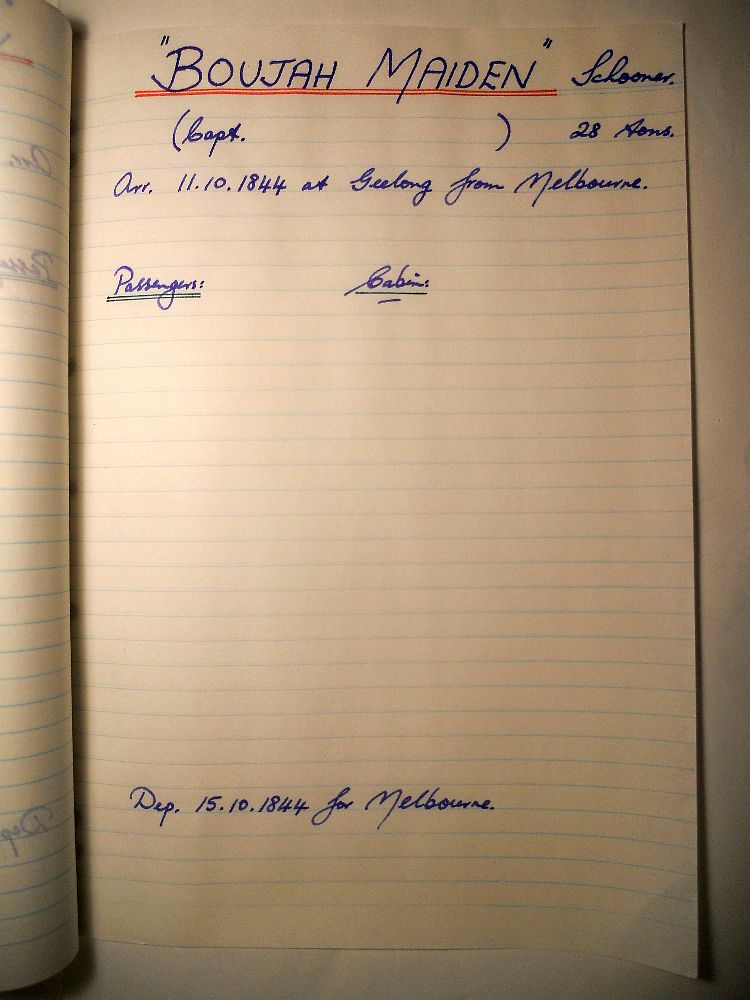 "BOUJAH MAIDEN" Schooner.
(Capt. ) 28 Tons.
Arr. 11.10.1844 at Geelong from Melbourne.
Passengers: Cabin:
Dep. 15.10.1844 for Melbourne.